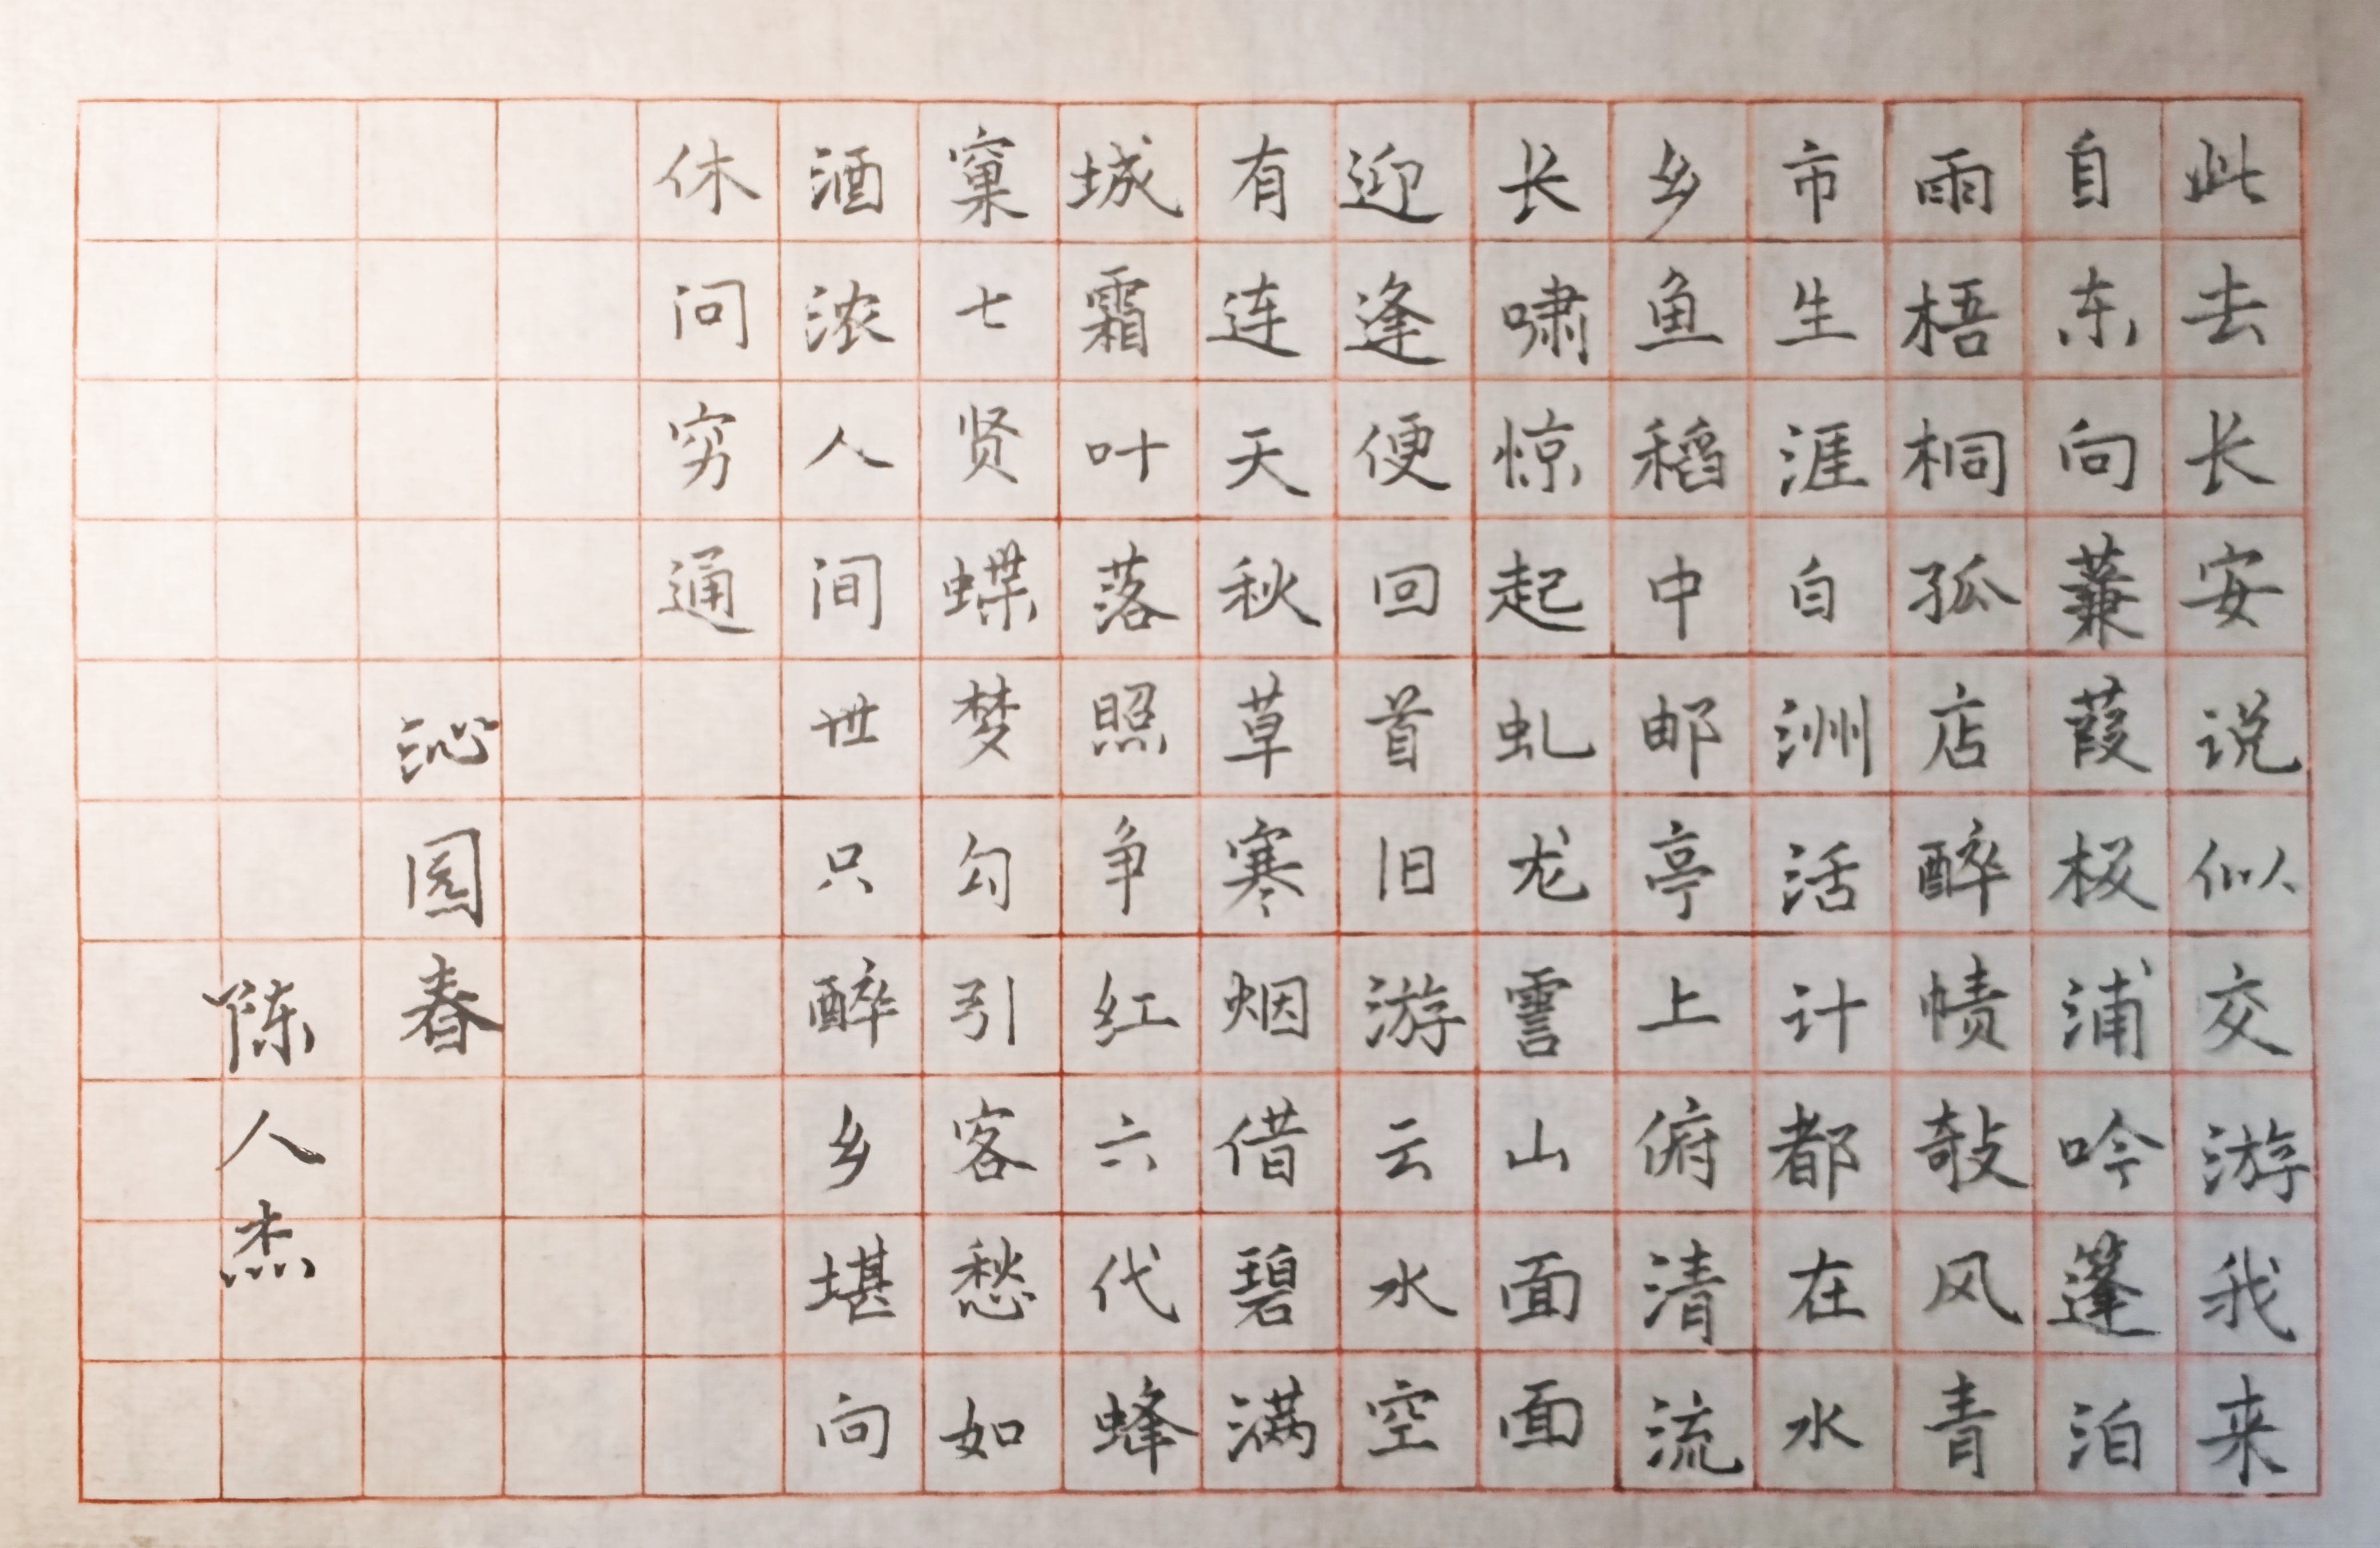 此去长安说似交游我来
自东向蒹葭极浦吟篷泊
雨梧桐孤店醉帻敧风青
市生涯自洲活计都在水
乡鱼稻中邮亭上俯清流
长啸惊起虬龙霅山面面
迎逢便回首旧游云水空
有连天秋草寒烟借碧满
城霜叶落照争红六代蜂
窠七贤蝶梦勾引客愁如
酒浓人间世只醉乡堪向
休问穷通
沁园春
陈人杰